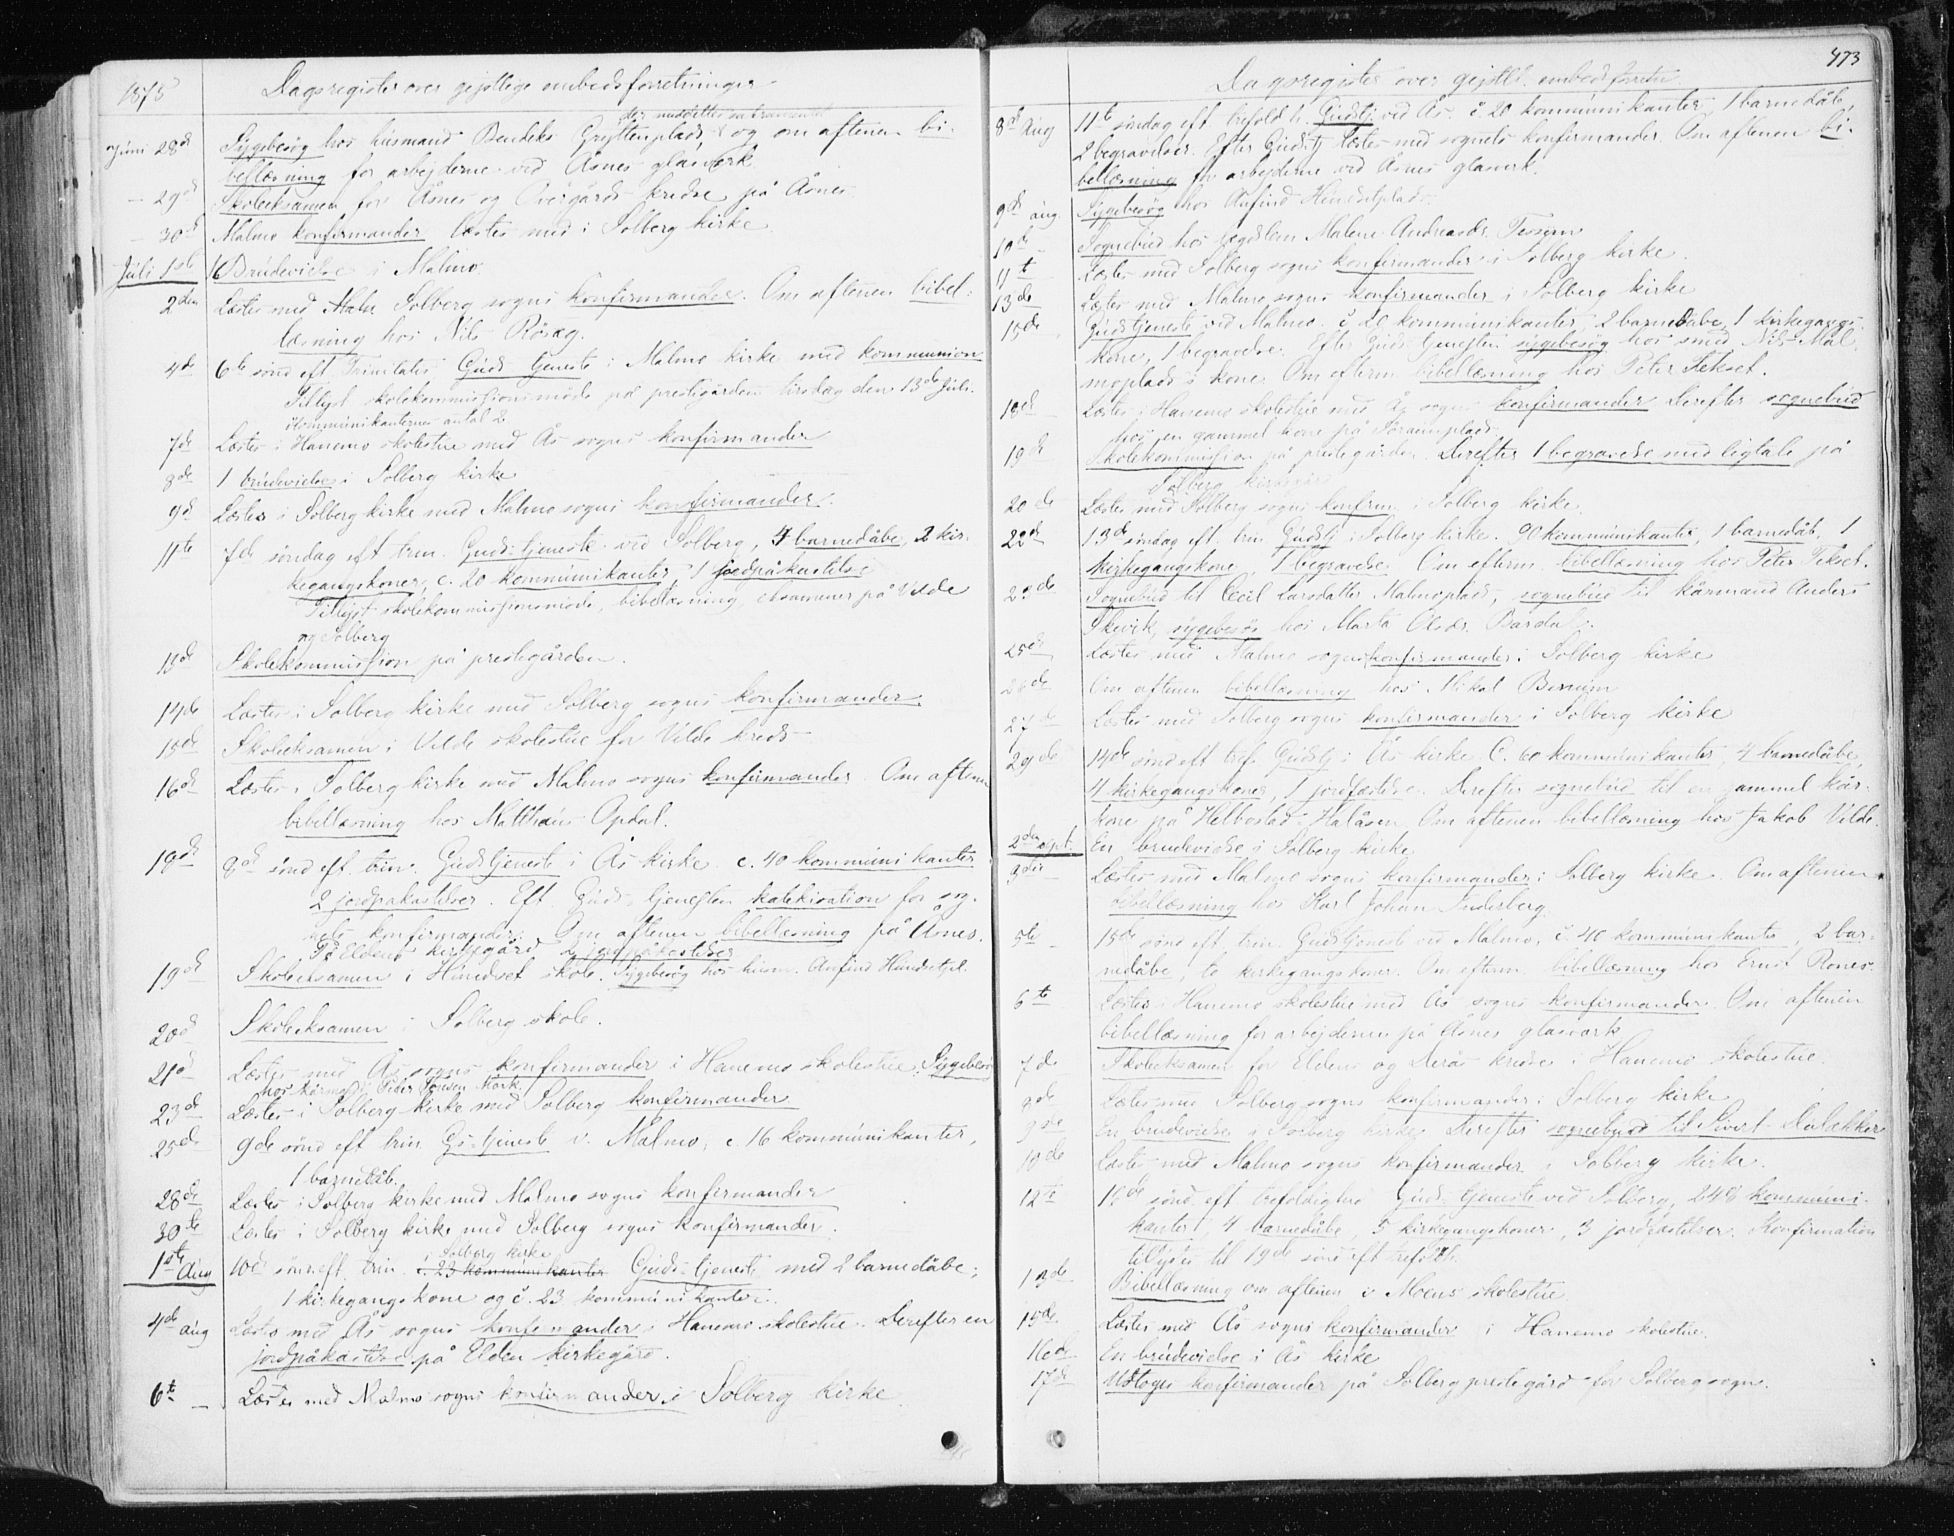 1875 Dagsregister over gejstlige embedsforretninger
der uddeltes sakramentet
Juni 28de Sygebesøg hos husmand Bendeks Gryttenplads, og om aftenen bi-
bellæsning for arbejderne ved Åsnes glasværk
– 29de Skoleeksamen for Åsnes og Overgårds kredse på Åsnes
– 30te Malmo konfirmander læstes med i Solberg kirke
Juli 1ste 1 Brudevielse i Malmo
2den Læstes med Solberg sogns konfirmander. Om aftenen bibel-
læsning hos Nils Røseg.
4de 6te sønd eft Trinitatis Guds tjeneste i Malmo kirke med kommunion
Tillyst skolekommissionsmøde på prestegården tirsdag den 13de Juli.
Kommunikanternes antal 2
7de Læstes i Hanemo skolestue med Ås sogns konfirmander
8de 1 brudevielse i Solberg kirke
9de Læstes i Solberg kirke med Malmo sogns konfirmander.
11te 7de søndag eft trin. Guds-tjeneste ved Solberg, 4 barnedåbe, 2 kir-
kegangskoner, c. 20 kommunikanter, 1 jordpåkastelse
Tillyst skolekommissionsmøde, bibellæsning eksamener på Vilde
og Solberg
13de Skolekommission på prestegården.
14de Læstes i Solberg kirke med Solberg sogns konfirmander.
15de Skoleeksamen i Vilde skolestue for Vilde kreds
16de Læstes i Solberg kirke med Malmo sogns konfirmander. Om aftenen
bibellæsning hos Matthæus Opdal.
18de 8de sønd eft trin. Gudstjeneste i Ås kirke. c. 40 kommunikanter
2 jordpåkastelser. Eft. Guds-tjenesten katekisation for sog-
nets konfirmander. Om aftenen bibellæsning på Åsnes.
På Eldens kirkegård 2 jordpåkastelser
19de Skoleeksamen i Hindset skole. Sygebesøg hos husm. Anfind Hundsetpl.
20de Skoleeksamen i Solberg skole.
21de Læstes med Ås sogns konfirmander i Hanemo skolestue. Sygebesøg
hos Peder Jonsen Mork.
23de Læstes i Solberg kirke med Solberg konfirmander
25de 9de sønd eft trin. Gs-tjeneste v. Malmo, c. 16 kommunikanter,
1 barnedåb.
28de Læstes i Solberg kirke med Malmo sogns konfirmander
30te Læstes i Solberg kirke med Solberg sogns konfirmander.
i Solberg kirke
1ste Aug 10de sønd eft trin. c. 23 kommunikanter Guds-tjeneste med 2 barnedåbe;
1 kirkegangskone og c. 23 kommunikanter.
4de aug Læstes med Ås sogns konfirmander i Hanemo skolestue. Derefter en
jordpåkastelse på Elden kirkegård.
6te – Læstes med Malmo sogns konfirmander i Solberg kirke
473
Dagsregister over gejstl. embedsforretn
8de Aug 11te søndag eft trefold h. Gudstj ved Ås. c 20 kommunikanter, 1 barnedåb,
2 begravelser. Efter Gudstj læstes med sognets konfirmander. Om aftenen bi-
bellæsning for arbejderne ved Åsnes glasverk.
9de aug. Sygebesøg hos Anfind Hundsetplads
10de – Sognebud hos Malene Andreasdr. Tessem
11te Læstes med Solberg sogns konfirmander i Solberg kirke.
13de Læstes med Malmo sogns konfirmander i Solberg kirke
15de Guds tjeneste ved Malmo. c 20 kommunikanter, 2 barnedåbe, 1 kirkegangs-
kone, 1 begravelse. Efter Guds tjenesten sygebesøg hos smed Nils Mal
moplads's kone. Om efterm bibellæsning hos Peter Tekset.
18de Læstes i Hanemo skolestue med Ås sogns konfirmander. Derefter sognebud
hos en gammel kone på
19de Skolekommission på prestegården. Derefter 1 begravelse med ligtale på
Solberg kirkegård
20de Læstes med Solberg sogns konfirm. i Solberg kirke.
22de 13de søndag eft. trin Gudstj i Solberg kirke. 90 kommunikanter, 1 barnedåb, 1
kirkegangskone, 1 begravelse. Om efterm. bibellæsning hos Peter Tekset.
23de Sognebud til Cecil Larsdatter Malmoplads, sognebud til kårmand Anders
Skevik, sygebesøg hos Marta Olsdr. Bardal.
25de Læstes med Malmo sogns konfirmander i Solberg kirke
26de Om aftenen bibellæsning hos Mikal Benum
27de Læstes med Solberg sogns konfirmander i Solberg kirke
29de 14de sønd eft tref. Gudstj i Ås kirke. C. 60 kommunikanter, 4 barnedåbe,
4 kirkegangskoner, 1 jordfæstelse. Derefter sognebud til en gammel kår-
kone på Helbostad-Halåsen. Om aftenen bibellæsning hos Jakob Vilde.
2den sept. En brudevielse i Solberg kirke
3die Læstes med Malmo sogns konfirmander i Solberg kirke. Om aftenen
bibellæsning hos Karl Johan Inderberg.
5te 15de sønd eft trin. Gudstjeneste ved Malmo, c 40 kommunikanter, 2 bar-
nedåbe, to kirkegangskoner. Om efterm. bibellæsning hos Ernst Rones.
6te Læstes i Hanemo skolestue med Ås sogns konfirmander. Om aftenen
bibellæsning for arbejderne på Åsnes glasværk
7de Skoleeksamen for Eldens og Derås kredse i Hanemo skolestue.
8de Læstes med Solberg sogns konfirmander i Solberg kirke
9de En brudevielse i Solberg kirke. Derefter sognebud til Sivert
10de Læstes med Malmo sogns konfirmander i Solberg kirke.
12te 16de sønd. eft trefoldighed Guds-tjeneste ved Solberg, 248 kommuni-
kanter, 4 barnedåbe, 5 kirkegangskoner, 3 jordfæstelser. Konfirmation
tillyses til 19de sønd eft trefoldh.
13de Bibellæsning om aftenen i Moens skolestue
15de Læstes med Ås sogns konfirmander i Hanemo skolestue.
16de En brudevielse i Ås kirke
17de Udtoges konfirmander på Solberg prestegård for Solberg sogn.